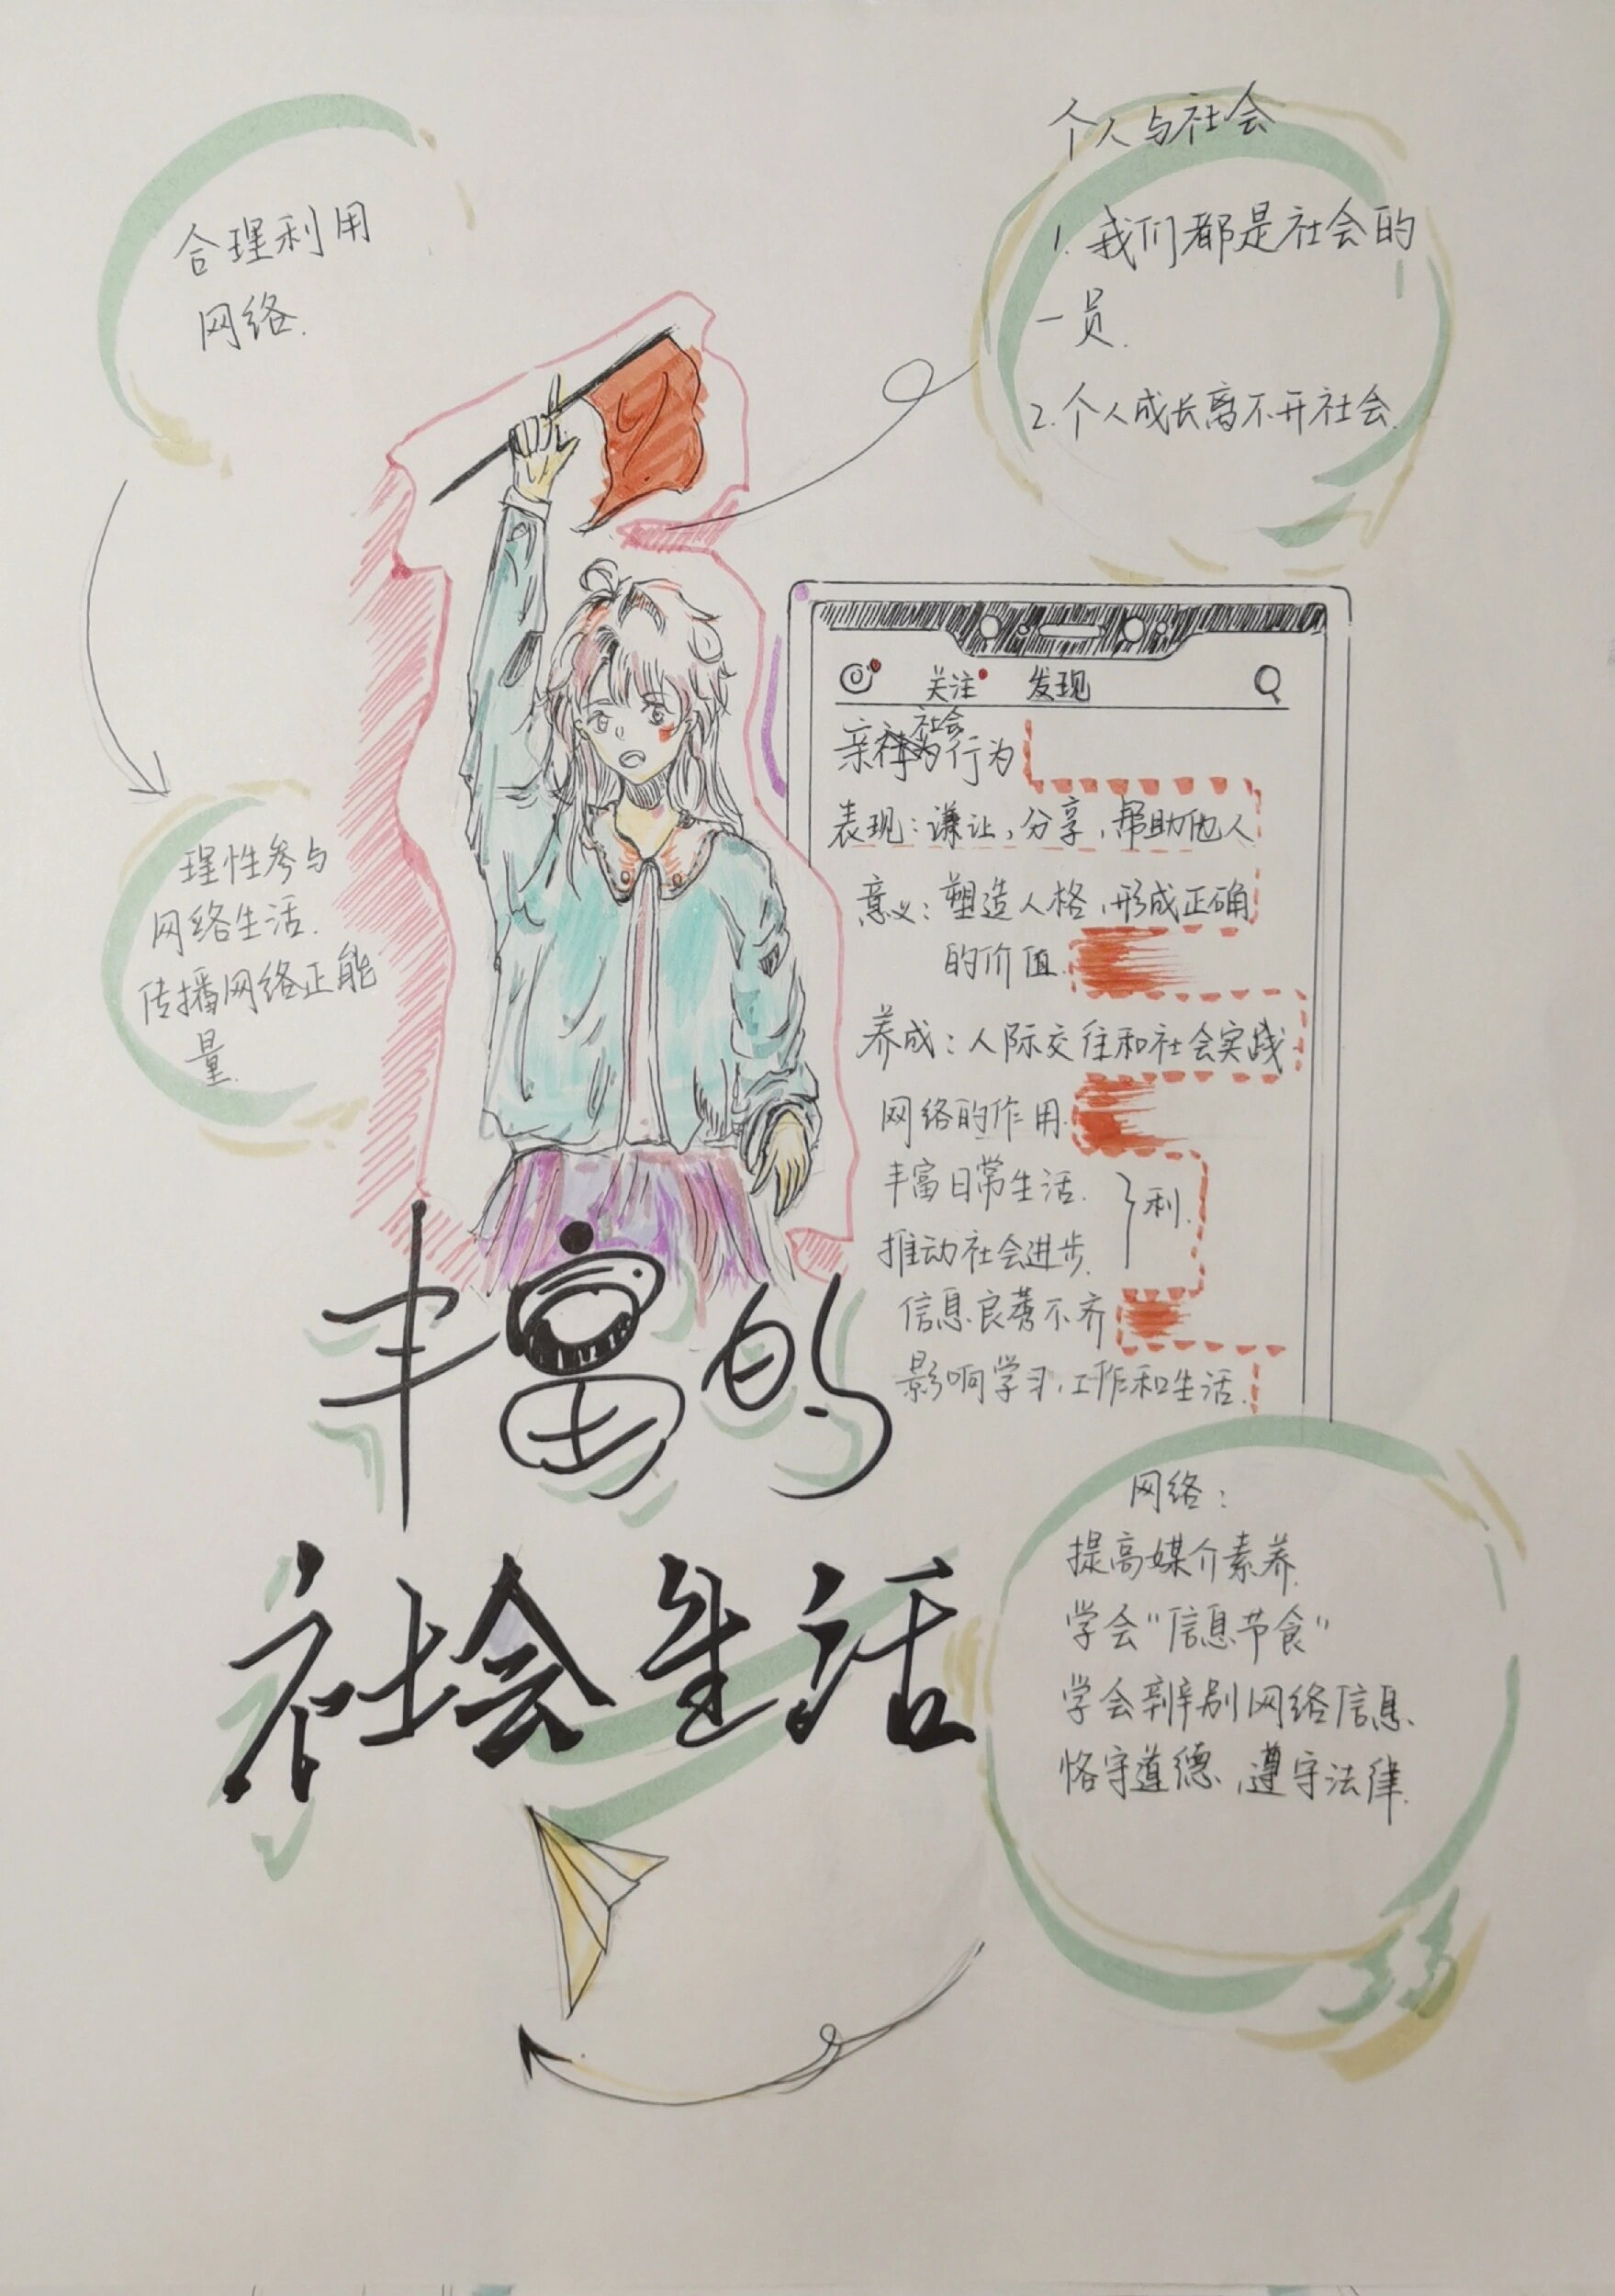 个人与社会
1. 我们都是社会的
一员.
2. 个人成长离不开社会.
合理利用
网络.
理性参与
网络生活.
传播网络正能
量.
关注 发现
亲社会行为
表现：谦让，分享，帮助他人
意义：塑造人格，形成正确
的价值.
养成：人际交往和社会实践
网络的作用.
丰富日常生活.
推动社会进步.
}利.
信息良莠不齐
影响学习，工作和生活.
丰富的
社会生活
网络：
提高媒介素养.
学会“信息节食”
学会辨别网络信息.
恪守道德，遵守法律.